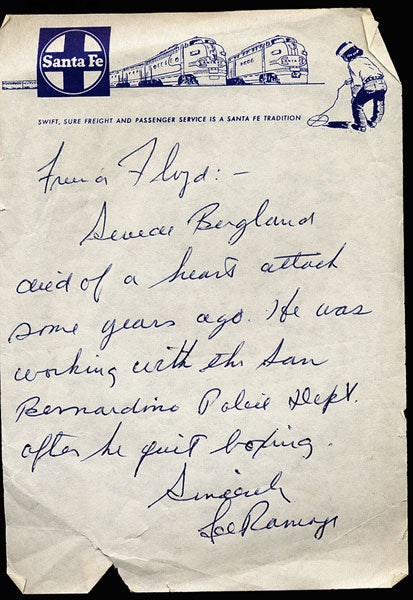 Santa Fe
SWIFT, SURE FREIGHT AND PASSENGER SERVICE IS A SANTA FE TRADITION
Friend Floyd:-
Swede Bergland
died of a heart attack
some years ago. He was
working with the San
Bernardino Police Dept.
after he quit boxing.
Sincerely
Joe Ramage